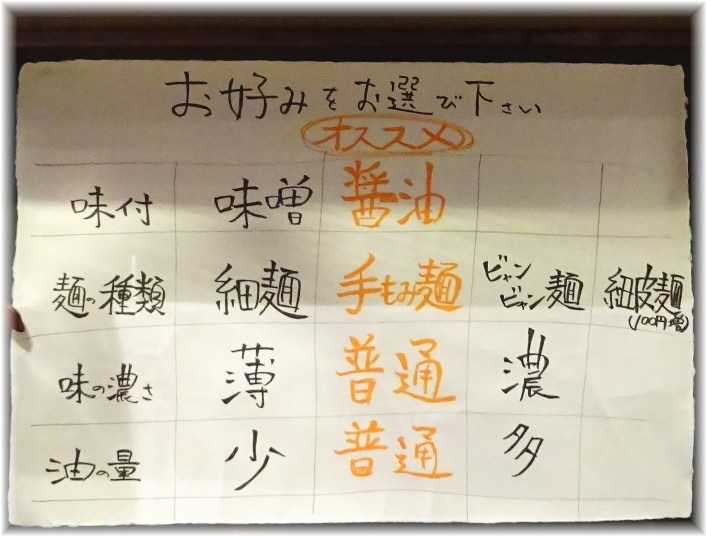 お好みをお選び下さい
オススメ
味付 味噌 醤油
麺の種類 細麺 手もみ麺 ビャンビャン麺 細皮麺(100円増)
味の濃さ 薄 普通 濃
油の量 少 普通 多